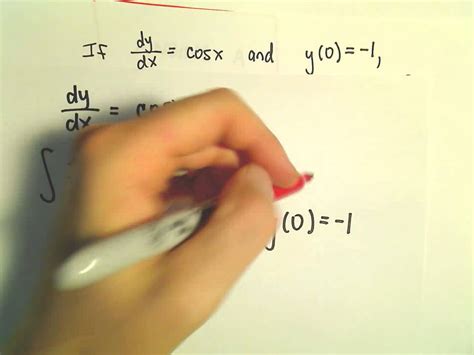 If dy/dx = cosx and y(0)=-1,
dy/dx =
∫
y(0)=-1